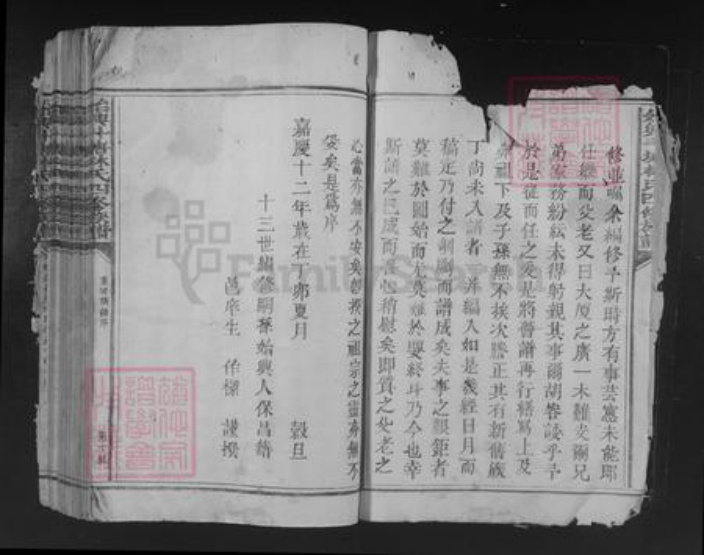 修並囑余編修予斯時方有事芸窓未能即
任繼而父老又曰大厦之廣一木難支爾兄
弟家務紛紜未得躬親其事爾胡辭諉乎予
於是從而任之爰是將舊譜再行繕寫上及
先祖下及子孫無不挨次謄正其有新舊族
丁尚未入譜者并編入如是幾經日月而
稿定乃付之剞劂而譜成矣夫事之艱鉅者
莫難於圖始而尤莫難於要終予乃今也幸
斯譜之已成而予心稍慰矣即質之父老之
心當亦無不安矣即揆之祖宗之靈亦無不
妥矣是為序
嘉慶十二年歲在丁卯夏月 穀旦
十三世緝修嗣孫始興人保昌籍
邑庠生 作樑 謹撰
林氏四修族譜
FamilySearch